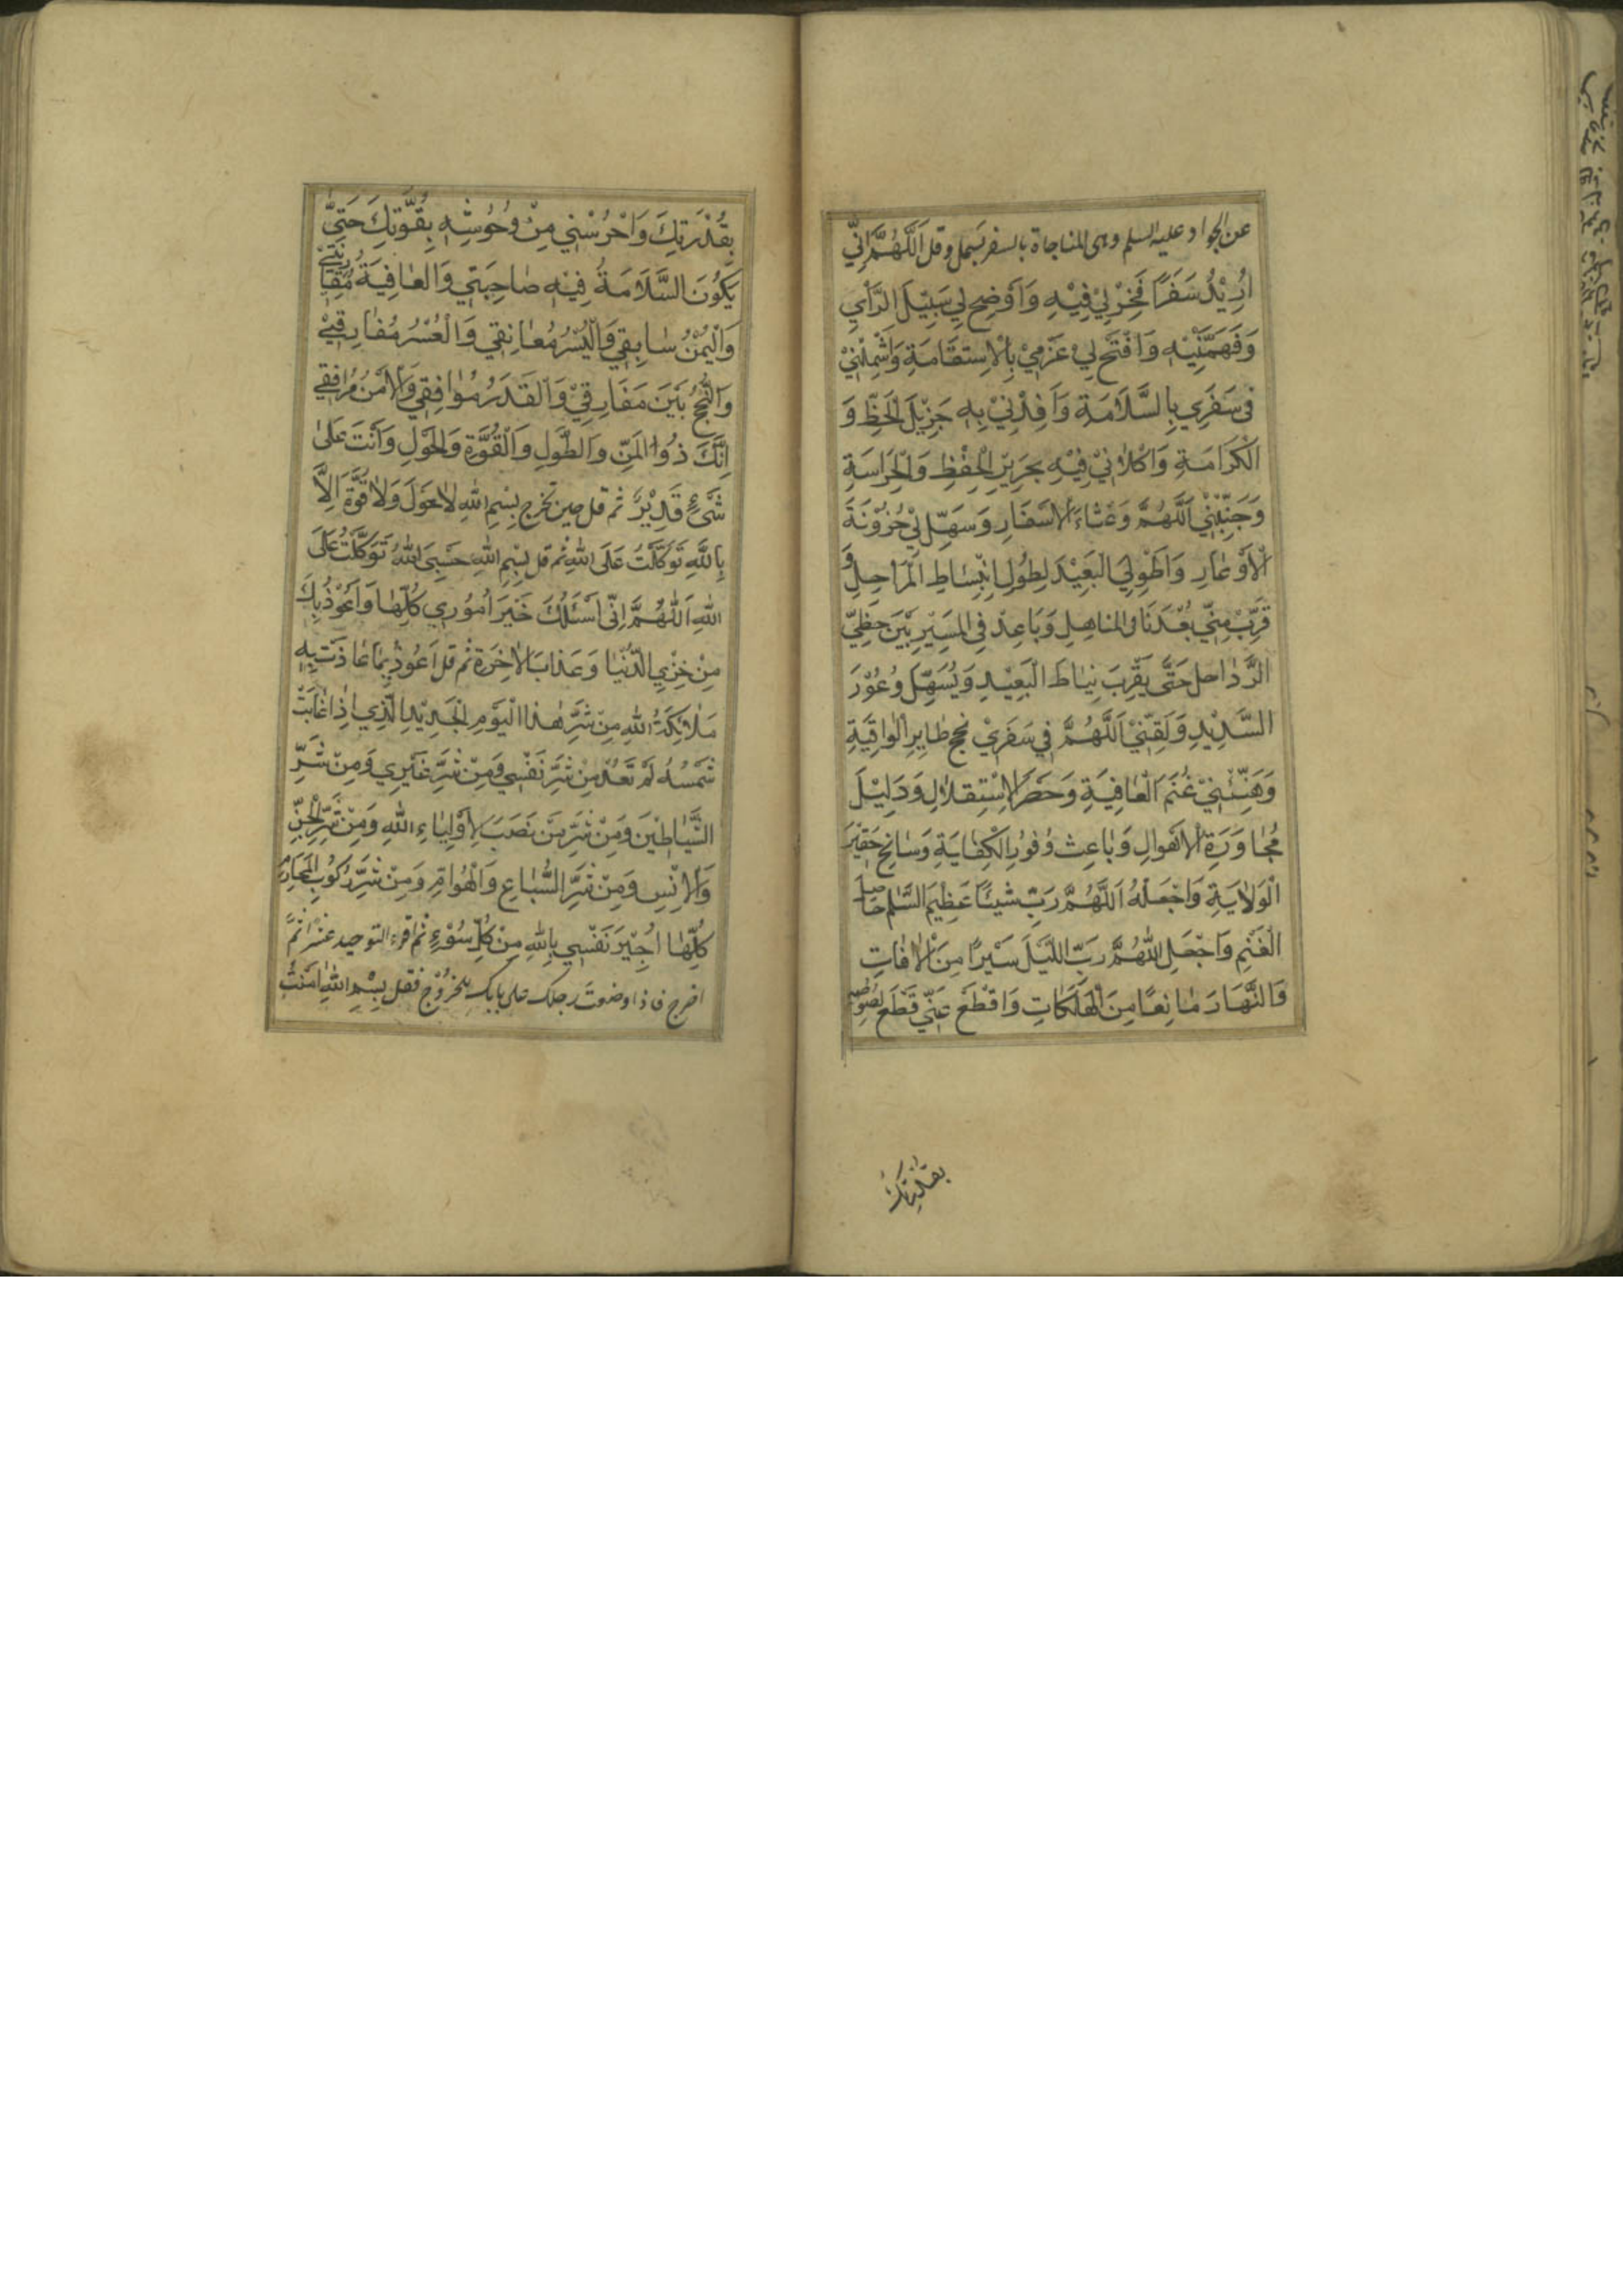 عن الجواد عليه السلم وهى المناجاة بالسفر بسمل وقل اَللّٰهُمَّ اِنِّي
اُرِيْدُ سَفَرًا فَخِرْ لِيْ فِيْهِ وَاَوْضِحْ لِي سَبِيْلَ الرَّأْيِ
وَفَهِّمْنِيْهِ وَافْتَحْ لِيْ عَزْمِيْ بِالْاِسْتِقَامَةِ وَاشْمِلْنِيْ
فِى سَفَرِي بِالسَّلَامَةِ وَاَفِدْنِيْ بِهِ جَزِيْلَ الْحَظِّ وَ
الْكَرَامَةِ وَاكْلَاْنِيْ فِيْهِ بِحَرِيْزِ الْحِفْظِ وَالْحِرَاسَةِ
وَجَنِّبْنِيْ اَللّٰهُمَّ وَعْثَاءَ الْاَسْفَارِ وَسَهِّلْ لِيْ حُزُوْنَةَ
الْاَوْعَارِ وَاطْوِ لِيَ الْبَعِيْدَ لِطُولِ انْبِسَاطِ الْمَرَاحِلِ وَ
قَرِّبْ مِنِّي بُعْدَ نَاْىِ المناهِلِ وَبَاعِدْ فِى الْمَسِيْرِ بَيْنَ خُطِيّ
الرَّوَاحِلِ حَتّٰى يَقْرِبَ نِيَاطَ الْبَعِيْدِ وَيُسَهِّلَ وُعُوْرَ
السَّدِيْدِ وَلَقِّنِيْ اَللّٰهُمَّ فِي سَفَرِيْ نُجْحَ طَايِرِ الْوَاقِيَةِ
وَهَنِّئْنِيْ غُنْمَ الْعَافِيَةِ وَحَصَرَ الْاِسْتِقْلَالِ وَدَلِيْلَ
مُجَاوَرَةِ الْاَهْوَالِ وَبَاعِثَ وُفُوْرِ الْكِفَايَةِ وَسَانِحَ حَقِيْرَ
الْوَلَايَةِ وَاجْعَلْهُ اَللّٰهُمَّ رَبِّ شَيْئًا عَظِيْمَ السَّلْمِ حَاصِلَ
الْغُنْمِ وَاجْعَلِ اللّٰهُمَّ رَبِّ اللَّيْلَ سَيْرًا مِنَ الْاٰفَاتِ
وَالنَّهَارَ مَانِعًا مِنَ الْهَلَكَاتِ وَاقْطَعْ عَنِّي قَطْعَ لُصُوْصِهِ
بقدرتك
بِقُدْرَتِكَ وَاحْرُسْنِي مِنْ وُحُوْشِهِ بِقُوَّتِكَ حَتّٰى
يَكُوْنَ السَّلَامَةُ فِيْهِ صَاحِبَتِي وَالْعَافِيَةُ مُقَارِنَتِيْ
وَالْيُمْنُ سَابِقِي وَالْيُسْرُ مُعَانِقِي وَالْعُسْرُ مُفَارِقِيْ
وَالنُّجْحُ بَيْنَ مَفَارِقِيْ وَالْقَدَرُ مُوَافِقِي وَالْاَمْنُ مُرَافِقِي
اِنَّكَ ذُوا الْمَنِّ وَالطَّوْلِ وَالْقُوَّةِ وَالْحَوْلِ وَاَنْتَ عَلٰى
شَىْءٍ قَدِيْرٌ ثم قل حين تخرج بِسْمِ اللهِ لَا حَوْلَ وَلَا قُوَّةَ اِلَّا
بِاللهِ تَوَكَّلْتُ عَلَى اللهِ ثم قل بِسْمِ اللهِ حَسْبِيَ اللهُ تَوَكَّلْتُ عَلَى
اللهِ اَللّٰهُمَّ اِنِّى اَسْئَلُكَ خَيْرَ اُمُوْرِي كُلِّهَا وَاَعُوْذُ بِكَ
مِنْ خِزْيِ الدُّنْيَا وَعَذَابِ الْاٰخِرَةِ ثم قل اَعُوْذُ بِمَا عَاذَتْ بِهِ
مَلَائِكَةُ اللهِ مِنْ شَرِّ هٰذَا الْيَوْمِ الْجَدِيْدِ الَّذِي اِذَا غَابَتْ
شَمْسُهُ لَمْ تَعُدْ مِنْ شَرِّ نَفْسِي وَمِنْ شَرِّ غَيْرِي وَمِنْ شَرِّ
الشَّيَاطِيْنَ وَمِنْ شَرِّ مَنْ نَصَبَ لِاَوْلِيَاءِ اللهِ وَمِنْ شَرِّ الْجِنِّ
وَالْاِنْسِ وَمِنْ شَرِّ السِّبَاعِ وَالْهَوَامِّ وَمِنْ شَرِّ رُكُوْبِ الْمَحَارِمِ
كُلِّهَا اُجِيْرُ نَفْسِي بِاللهِ مِنْ كُلِّ سُوْءٍ ثم اقرء التوحيد عشرا ثمّ
اخرج فاذا وضعت رجلك على بابك للخروج فقل بِسْمِ اللهِ اٰمَنْتُ